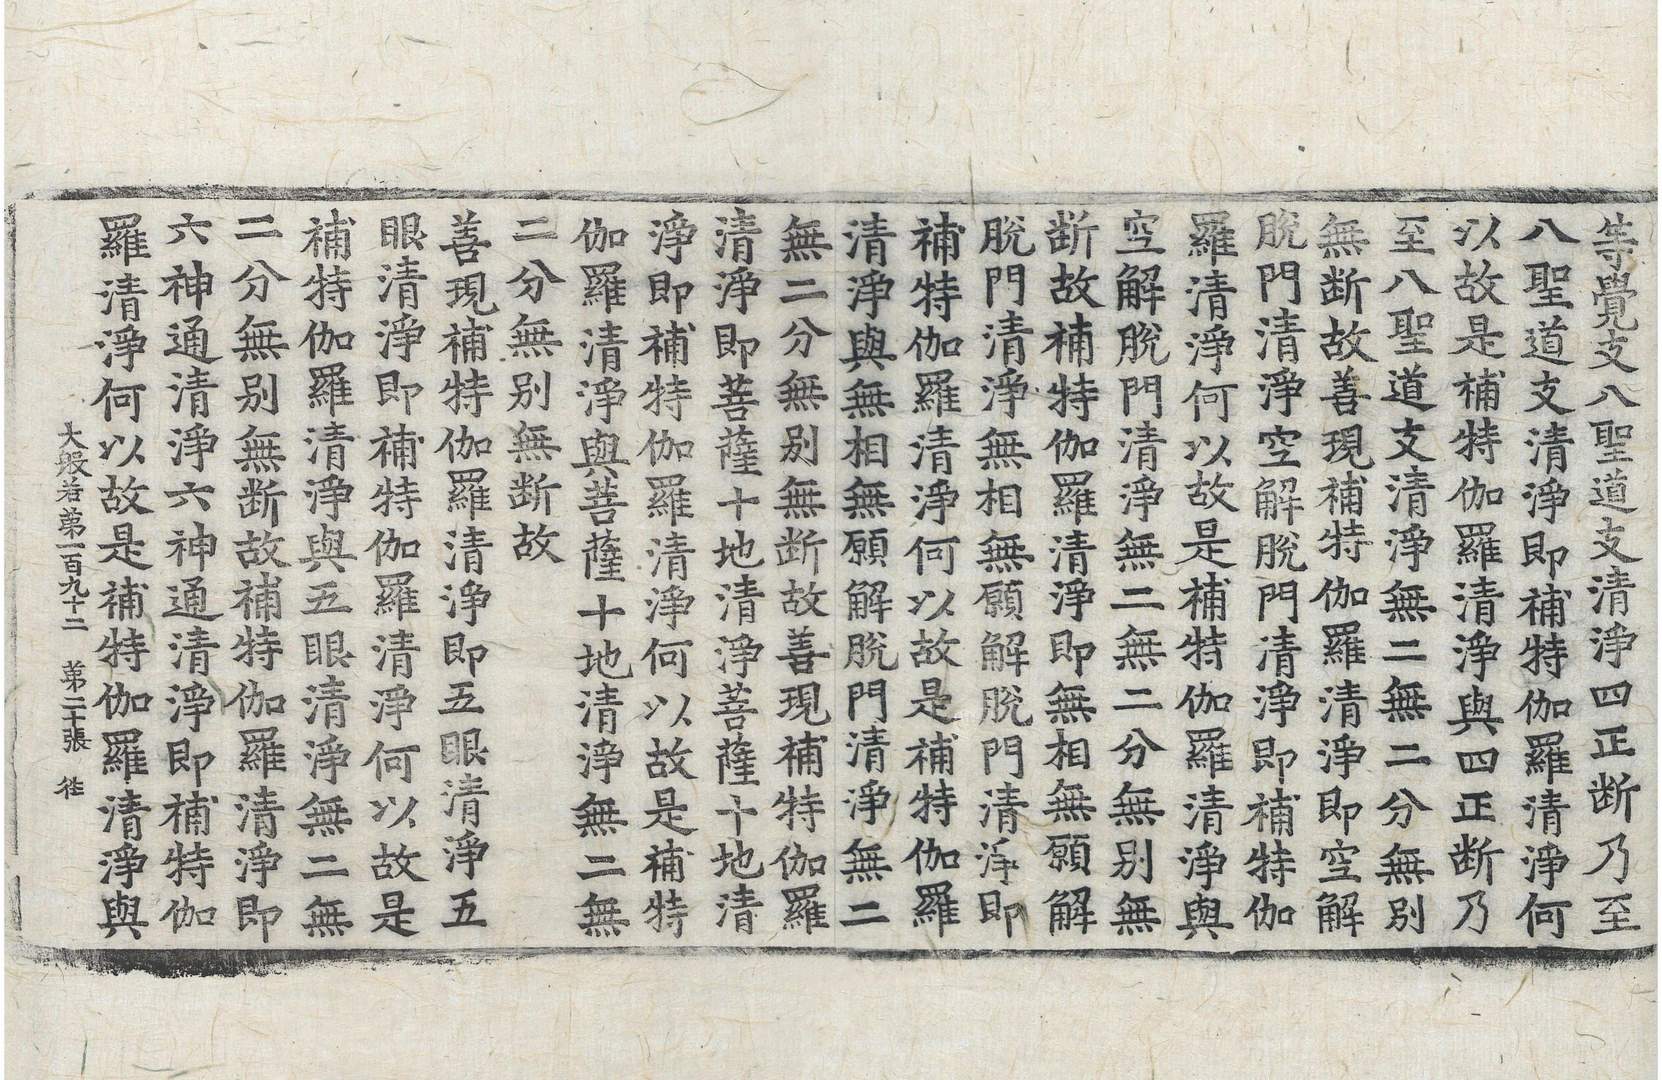 等覺支八聖道支清淨四正断乃至
八聖道支清淨即補特伽羅清淨何
以故是補特伽羅清淨與四正断乃
至八聖道支清淨無二無二分無别
無断故善現補特伽羅清淨即空解
脫門清淨空解脫門清淨即補特伽
羅清淨何以故是補特伽羅清淨與
空解脫門清淨無二無二分無别無
断故補特伽羅清淨即無相無願解
脫門清淨無相無願解脫門清淨即
補特伽羅清淨何以故是補特伽羅
清淨與無相無願解脫門清淨無二
無二分無别無断故善現補特伽羅
清淨即菩薩十地清淨菩薩十地清
淨即補特伽羅清淨何以故是補特
伽羅清淨與菩薩十地清淨無二無
二分無别無断故
善現補特伽羅清淨即五眼清淨五
眼清淨即補特伽羅清淨何以故是
補特伽羅清淨與五眼清淨無二無
二分無别無断故補特伽羅清淨即
六神通清淨六神通清淨即補特伽
羅清淨何以故是補特伽羅清淨與
大般若第一百九十二 第二十張 𢓈